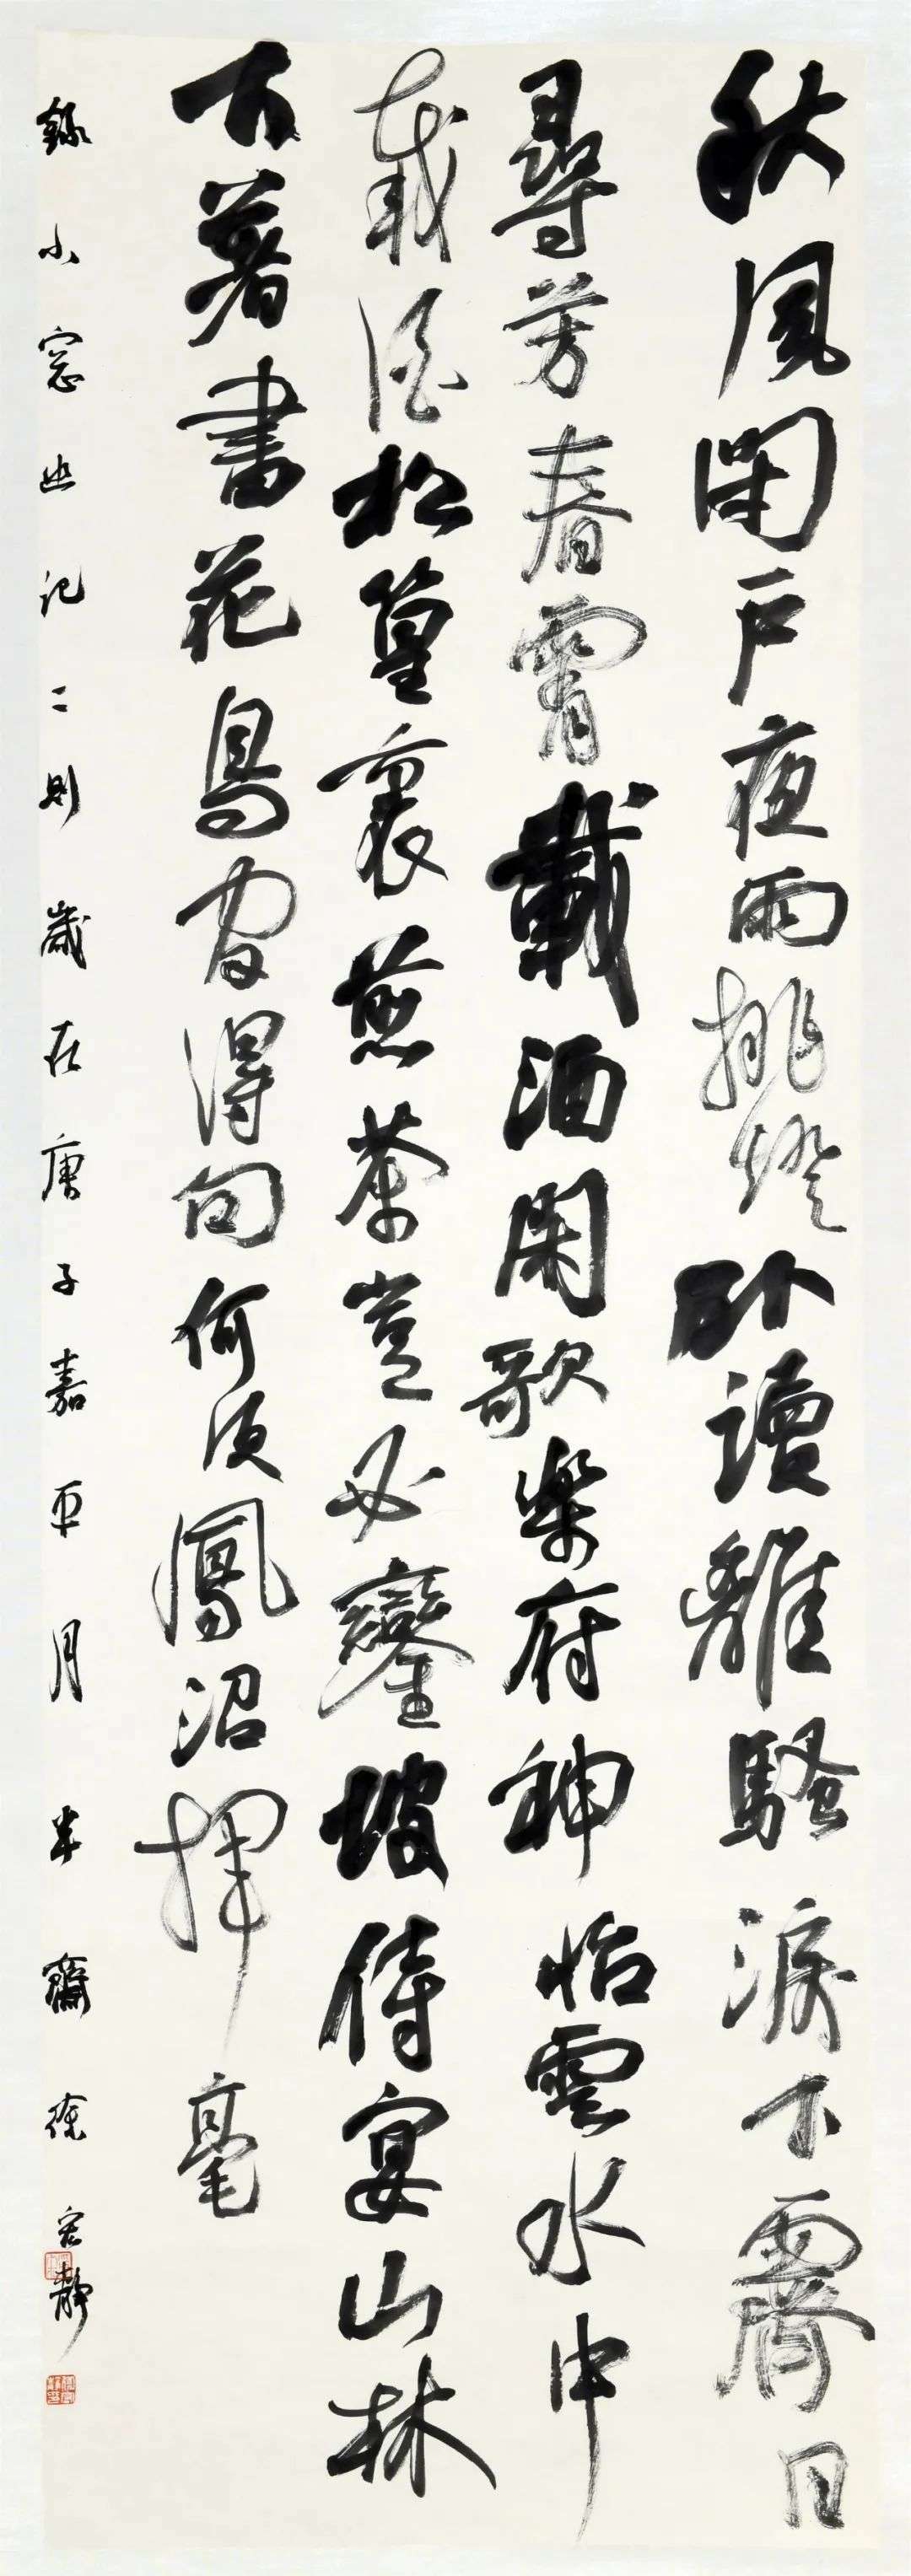 秋風閉戶夜雨挑燈臥讀離騷淚下霽日
尋芳春霄載酒閑歌樂府神怡雲水中
載酒松篁裏煎茶豈必鑾坡侍宴山林
下著書花鳥間得句何須鳳沼揮毫
錄小窗幽記二則歲在庚子嘉平月半齋徐宏靜